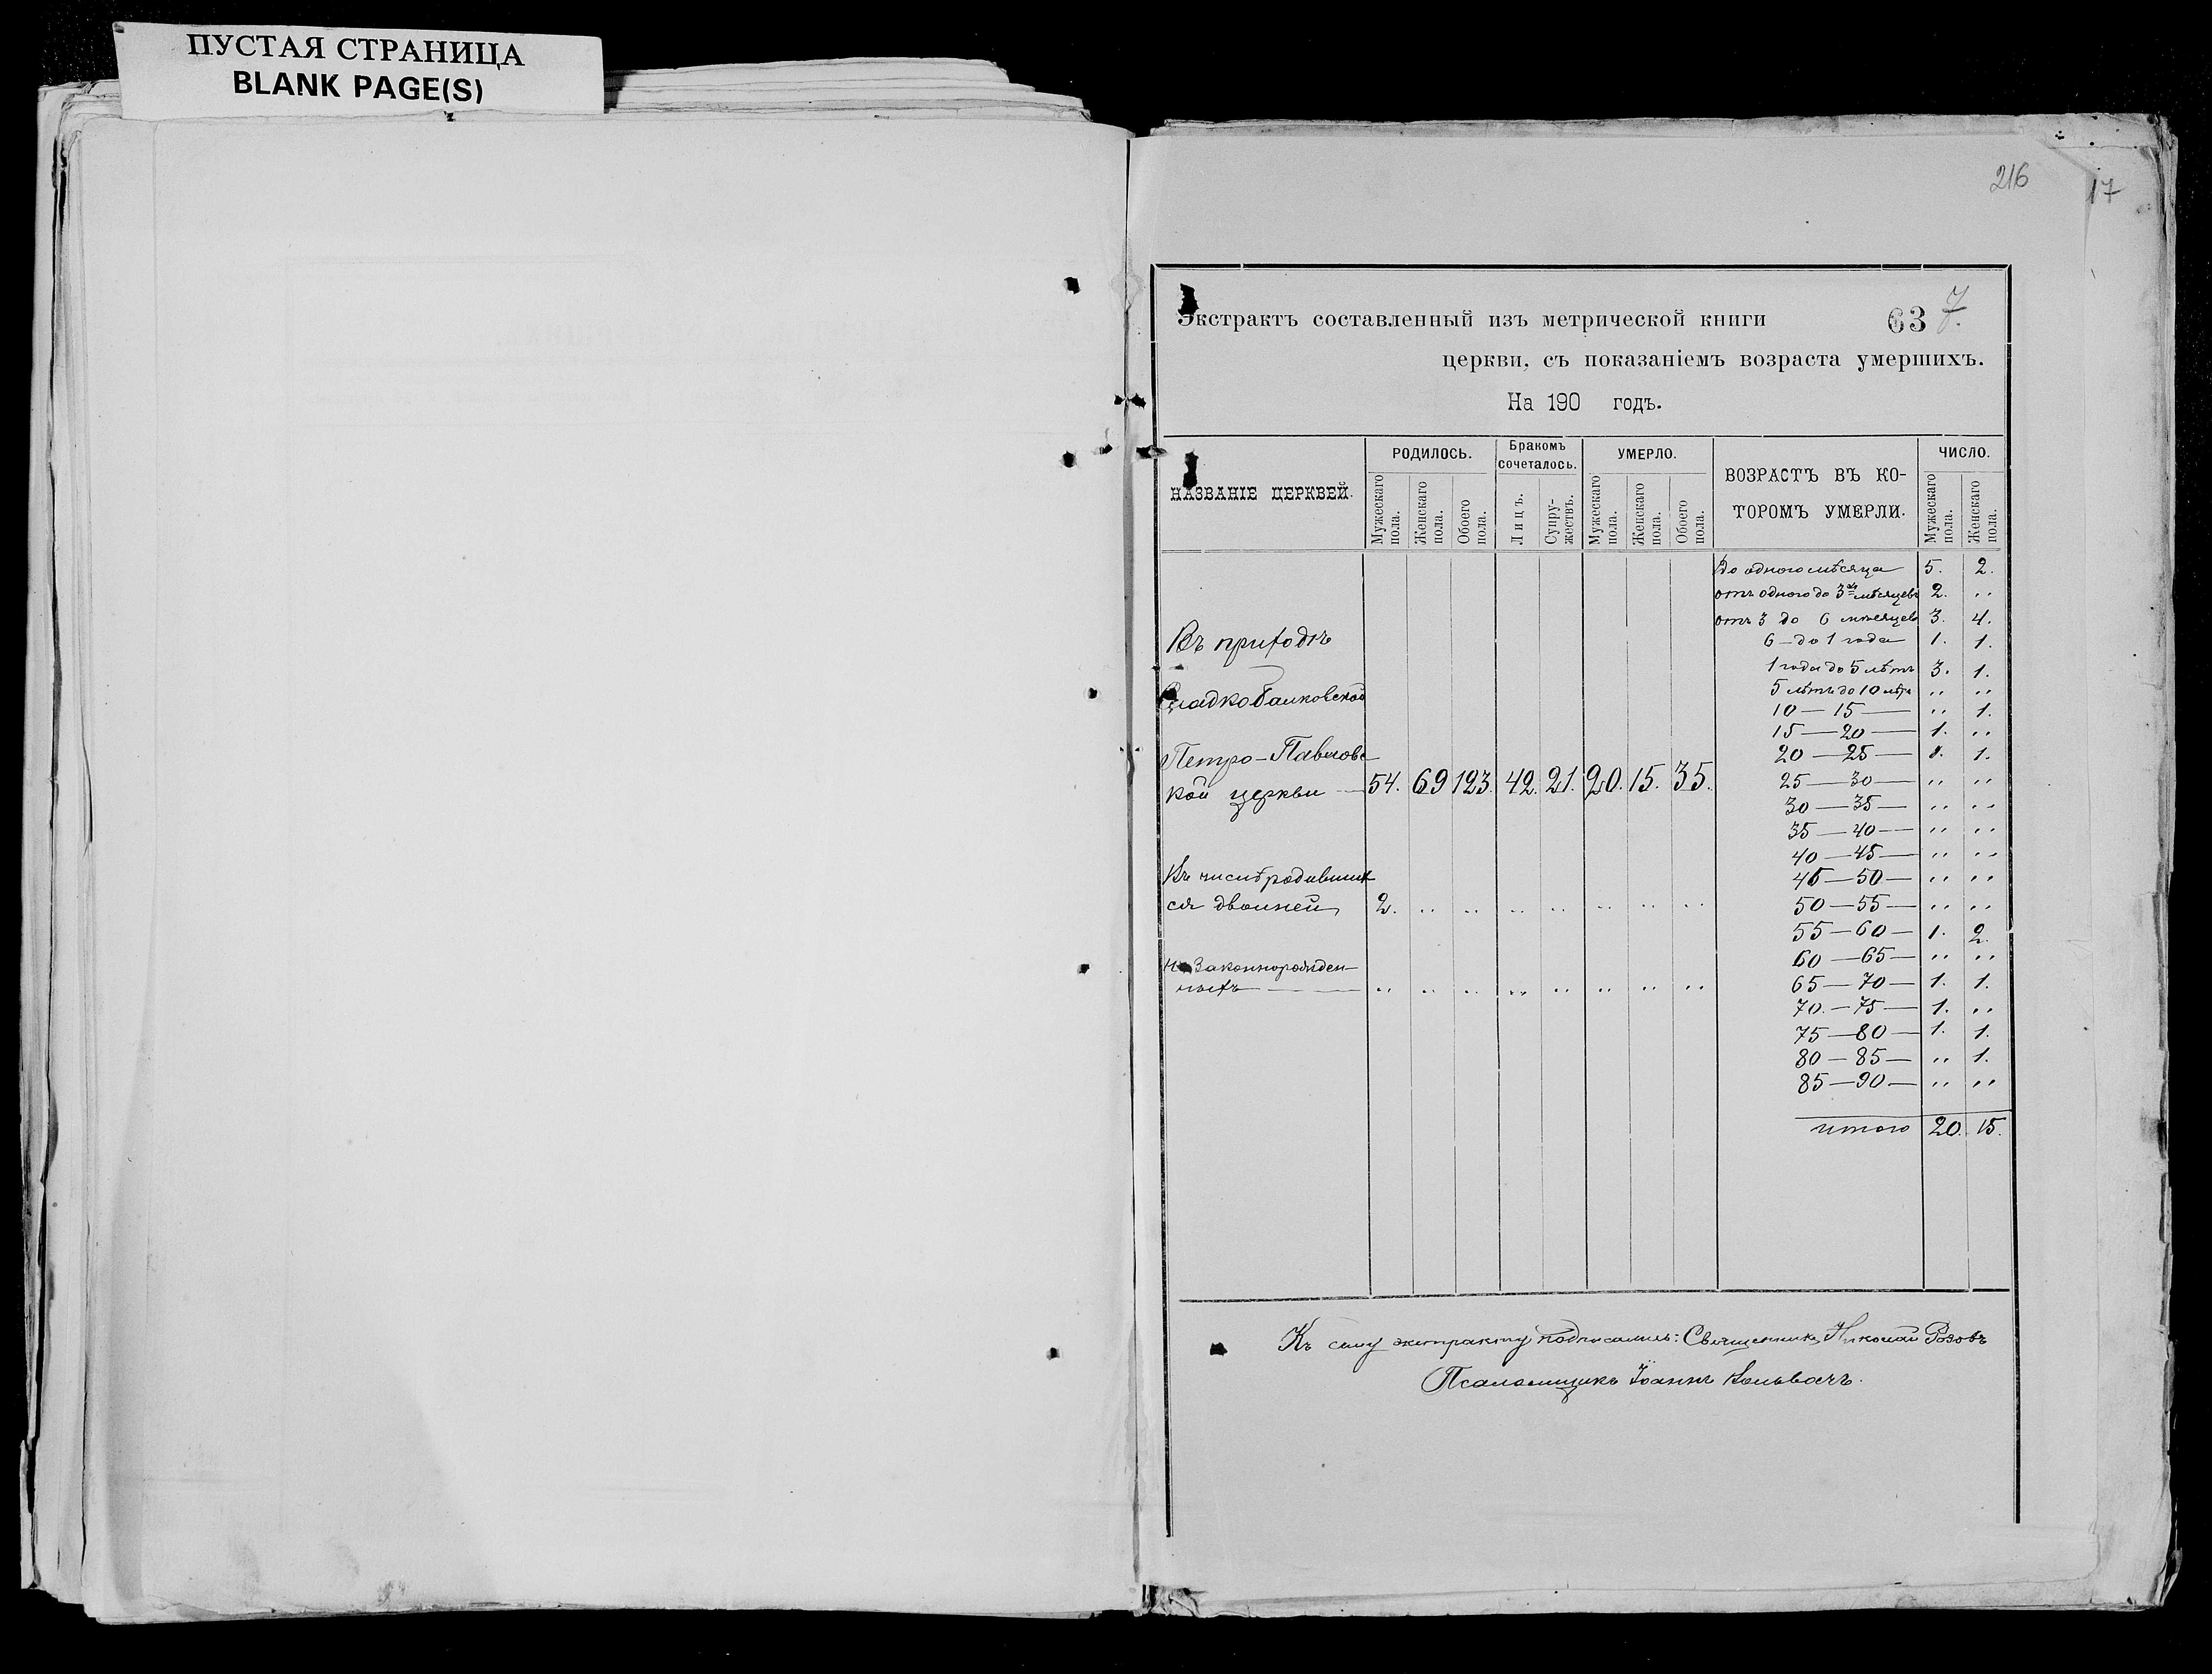 ПУСТАЯ СТРАНИЦА
BLANK PAGE(S)
216
17
Экстрактъ составленный изъ метрической книги 63 7.
церкви, съ показаніемъ возраста умершихъ.
На 190 годъ.
НАЗВАНІЕ ЦЕРКВЕЙ. РОДИЛОСЬ. Бракомъ сочеталось. УМЕРЛО. ВОЗРАСТЪ ВЪ КО-ТОРОМЪ УМЕРЛИ. ЧИСЛО.
Мужескаго пола. Женскаго пола. Обоего пола. Лицъ. Супру-жествъ. Мужескаго пола. Женскаго пола. Обоего пола. Мужескаго пола. Женскаго пола.
Въ приходѣ
Гладкобалковской
Петро-Павловс
кой церкви — 54. 69 123. 42. 21. 20. 15. 35.
Въ числѣ родивших
ся двойней 2. „ „ „ „ „ „ „
незаконнорожден
ныхъ — „ „ „ „ „ „ „ „
До одного мѣсяца 5. 2.
отъ одного до 3хъ мѣсяцевъ 2. „
отъ 3 до 6 мѣсяцевъ 3. 4.
6 — до 1 года — 1. 1.
1 года до 5 лѣтъ 3. 1.
5 лѣтъ до 10 лѣтъ „ „
10 — 15 — „ 1.
15 — 20 — 1. „
20 — 25 — 1. 1.
25 — 30 — „ „
30 — 35 — „ „
35 — 40 — „ „
40 — 45 — „ „
45 — 50 — „ „
50 — 55 — „ „
55 — 60 — 1. 2.
60 — 65 — „ „
65 — 70 — 1. 1.
70 — 75 — 1. „
75 — 80 — 1. 1.
80 — 85 — „ 1.
85 — 90 — „ „
итого 20. 15.
Къ сему экстракту подписались: Священникъ Николай Розовъ
Псаломщикъ Іоаннъ